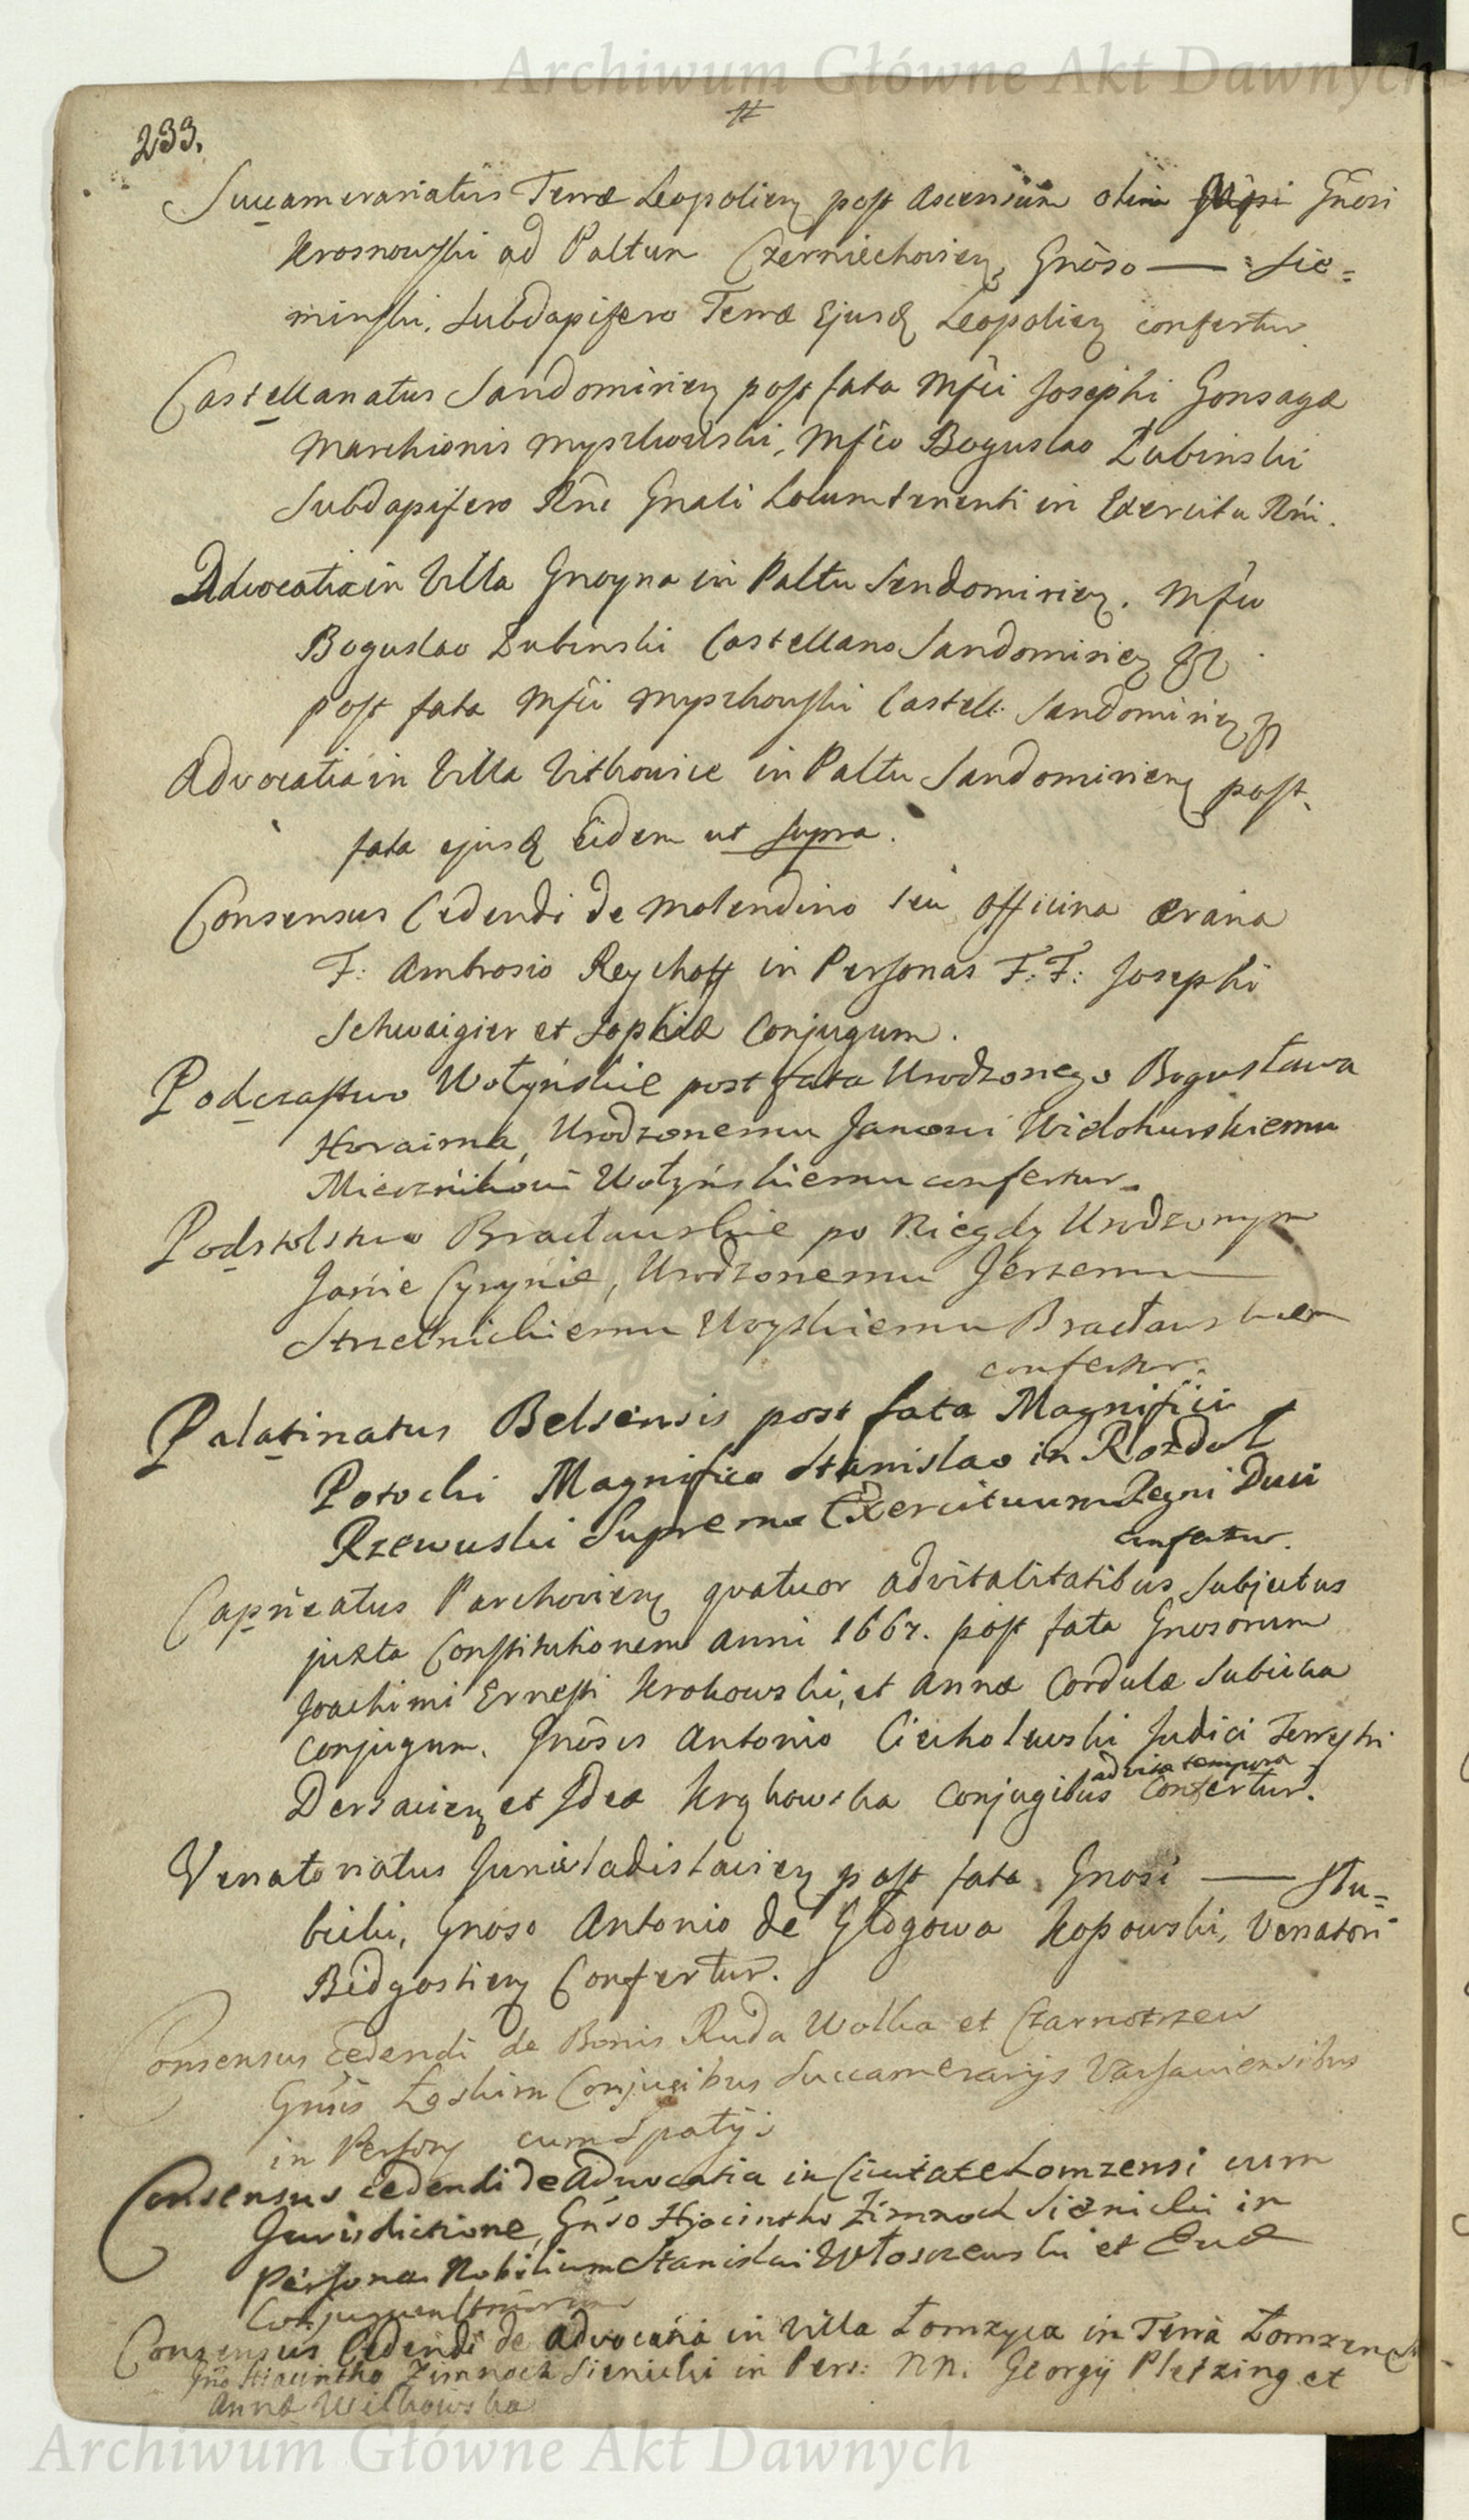 Archiwum Główne Akt Dawnych
233.
Succamerariatus Terræ Leopolien post Ascensum olim Gnosi
Krosnowski ad Paltum Czerniechovien, Gnoso — Sie=
minski, Subdapifero Terræ Ejusq Leopolien confertur.
Castellanatus Sandomirien post fata Mfci Josephi Gonsaga
Marchionis Myszkowski, Mfco Boguslao Łubinski
Subdapifero Rni Gnali Locumtenenti in Exercitu Rni.
Advocatia in Villa Gnoyna in Paltu Sendomirien. Mfco
Boguslao Łubinski Castellano Sandomirien
post fata Mfci Myszkowski Castell. Sandomirien
Advocatia in Villa Vitkowice in Paltu Sandomirien post
fata ejusq Eidem ut supra.
Consensus Cedendi de Molendino seu officina æraria
F: Ambrosio Reychoff in Personas F:F: Josephi
Schwaigier et Sophiæ Conjugum.
Podczastwo Wołyńskie post fata Urodzonego Bogusława
Horaima, Urodzonemu Janowi Wielohurskiemu
Miecznikowi Wołyńskiemu confertur.
Podstolstwo Bracławskie po Niegdy Urodzonym
Janie Cyrynie, Urodzonemu Jerzemu
Strzelnickiemu Woyskiemu Bracławskiem
confertur.
Palatinatus Belsensis post fata Magnifici
Potocki Magnifico Stanislao in Rozdoł
Rzewuski Supremo Exercituum Regni Duci
confertur.
Capneatus Parchovien quatuor advitalitatibus subjectus
juxta Constitutionem Anni 1667. post fata Gnosorum
Joachimi Ernesti Krokowski, et Annæ Cordulæ Subicka
conjugum. Gnosis Antonio Ciecholewski Judici Terrestri
ad vitæ tempora
Dersavien et Idea Krokowska Conjugibus Confertur.
Venatoriatus Juniwladislavien post fata Gnosi — Słu=
bicki, Gnoso Antonio de Głogowa Kossowski, Venatori
Bidgostien Confertur.
Consensus cedendi de Bonis Ruda Wolka et Czarnotrzew
Gnsis Łoskim Conjugibus Succamerarijs Varsaviensibus
in Person cum Spatij:
Consensus cedendi de Advocatia in Civitate Lomzensi cum
Jurisdictione, Gnso Hjacintho Zimnoch Sienicki in
Personas Nobilium Stanislai Włoszewski et Evæ
Conjugum
Consensus Cedendi de Advocatia in Villa Łomzyca in Terra Łomzensi
Gno Hiacyntho Zimnoch Sienicki in Pers: NN. Georgij Pletzing et
Annæ Witkowska
Archiwum Główne Akt Dawnych